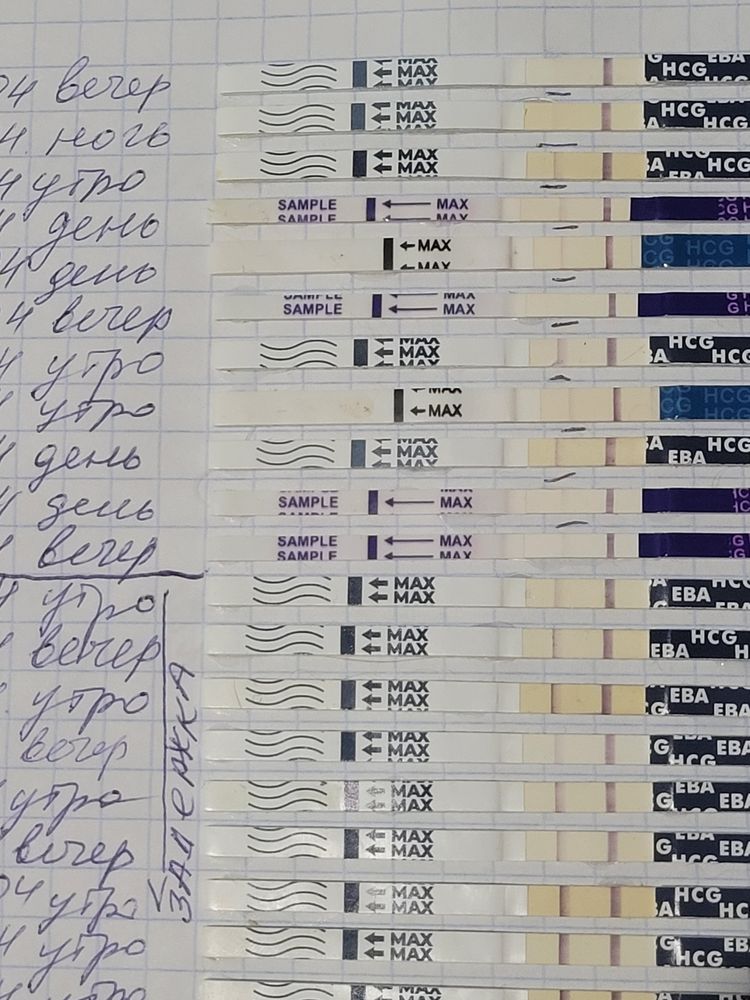 04 вечер MAX MAX MAX HCG EBA
4. ночь MAX MAX HCG HCG
4 утро MAX MAX HCG HCG EBA
4 день SAMPLE SAMPLE MAX MAX
4 день MAX MAX HCG HCG
4 вечер SAMPLE SAMPLE MAX MAX
4 утро MAX MAX MAX HCG HCG
4 утро MAX MAX HCG HCG
4 день MAX MAX MAX EBA HCG
4 день SAMPLE SAMPLE MAX MAX
4 вечер SAMPLE SAMPLE MAX MAX
4 утро MAX MAX EBA HCG
4 вечер MAX MAX EBA HCG
утро MAX MAX EBA EBA
вечер MAX MAX HCG EBA
утро MAX MAX EBA EBA
вечер MAX MAX EBA EBA
04 утро MAX MAX HCG HCG
4 утро MAX MAX HCG EBA
утро MAX
ЗАДЕРЖКА